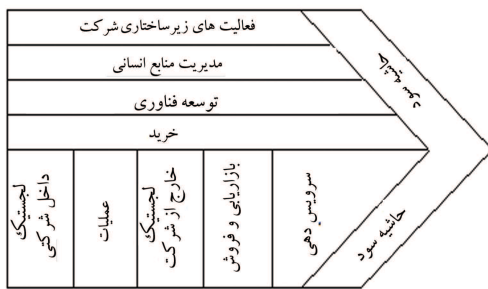 فعالیت های زیرساختاری شرکت
مدیریت منابع انسانی
توسعه فناوری
خرید
لجستیک
داخل شرکتی
عملیات
لجستیک
خارج از شرکت
بازاریابی و فروش
سرویس دهی
حاشیه سود
حاشیه سود